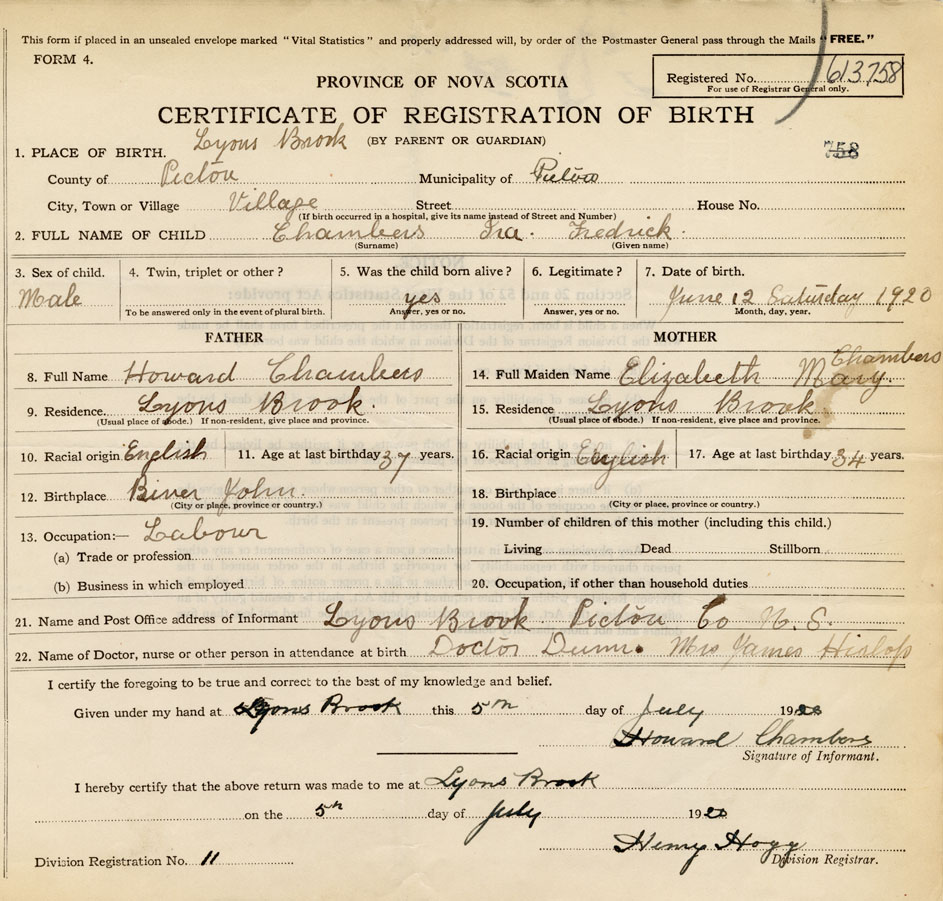 This form if placed in an unsealed envelope marked "Vital Statistics" and properly addressed will, by order of the Postmaster General pass through the Mails "FREE."
FORM 4.
Registered No. 613758
For use of Registrar General only.
PROVINCE OF NOVA SCOTIA
CERTIFICATE OF REGISTRATION OF BIRTH
(BY PARENT OR GUARDIAN)
758
1. PLACE OF BIRTH. Lyons Brook
County of Pictou Municipality of Pictou
City, Town or Village Village Street House No.
(If birth occurred in a hospital, give its name instead of Street and Number)
2. FULL NAME OF CHILD Chambers Ira. Fredrick.
(Surname) (Given name)
3. Sex of child. Male
4. Twin, triplet or other?
To be answered only in the event of plural birth.
5. Was the child born alive? yes
Answer, yes or no.
6. Legitimate?
Answer, yes or no.
7. Date of birth.
June 12 Saturday 1920
Month, day, year.
FATHER
8. Full Name Howard Chambers
9. Residence. Lyons Brook.
(Usual place of abode.) If non-resident, give place and province.
10. Racial origin English 11. Age at last birthday 37 years.
12. Birthplace River John.
(City or place, province or country.)
13. Occupation:— Labour
(a) Trade or profession.
(b) Business in which employed
MOTHER
14. Full Maiden Name Elizabeth Mary. Chambers
15. Residence Lyons Brook
(Usual place of abode.) If non-resident, give place and province.
16. Racial origin English 17. Age at last birthday 34 years.
18. Birthplace
(City or place, province or country.)
19. Number of children of this mother (including this child.)
Living Dead Stillborn
20. Occupation, if other than household duties
21. Name and Post Office address of Informant Lyons Brook Pictou Co N. S.
22. Name of Doctor, nurse or other person in attendance at birth Doctor Dunn. Mrs James Hislop
I certify the foregoing to be true and correct to the best of my knowledge and belief.
Given under my hand at Lyons Brook this 5th day of July 1920
Howard Chambers
Signature of Informant.
I hereby certify that the above return was made to me at Lyons Brook
on the 5th day of July 1920
Henry Hogg
Division Registrar.
Division Registration No. 11